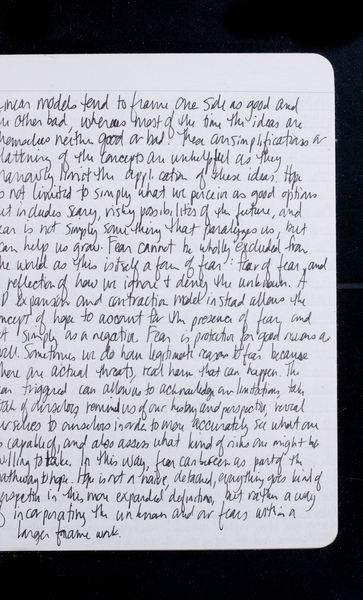 linear models tend to frame one side as good and
the other bad, whereas most of the time the ideas are
themselves neither good or bad. These oversimplifications or
flattening of the concepts are unhelpful as they
narrowly limit the application of these ideas. Hope
is not limited to simply what we perceive as good options
but includes scary, risky possibilities of the future, and
fear is not simply something that paralyses us, but
can help us grow. Fear cannot be wholly excluded from
the world as this is itself a form of fear: fear of fear, and
a reflection of how we ignore & deny the unknown. A
D expansion and contraction model instead allows the
concept of hope to account for the presence of fear, and
not simply as a negative. Fear is protective for good reasons as
well. Sometimes we do have legitimate reason to fear because
there are actual threats, real harm that can happen. The
fear triggered can allow us to acknowledge our limitations, take
care of ourselves, remind us of our history and perspective, reveal
ourselves to ourselves in order to more accurately see what one
is capable of, and also assess what kind of risks one might be
willing to take. In this way, fear can be seen as part of the
pathway to hope. Hope is not a naïve, detached, everything goes kind of
perspective in this more expanded definition, but rather a way
of incorporating the unknown and our fears within a
larger frame work.